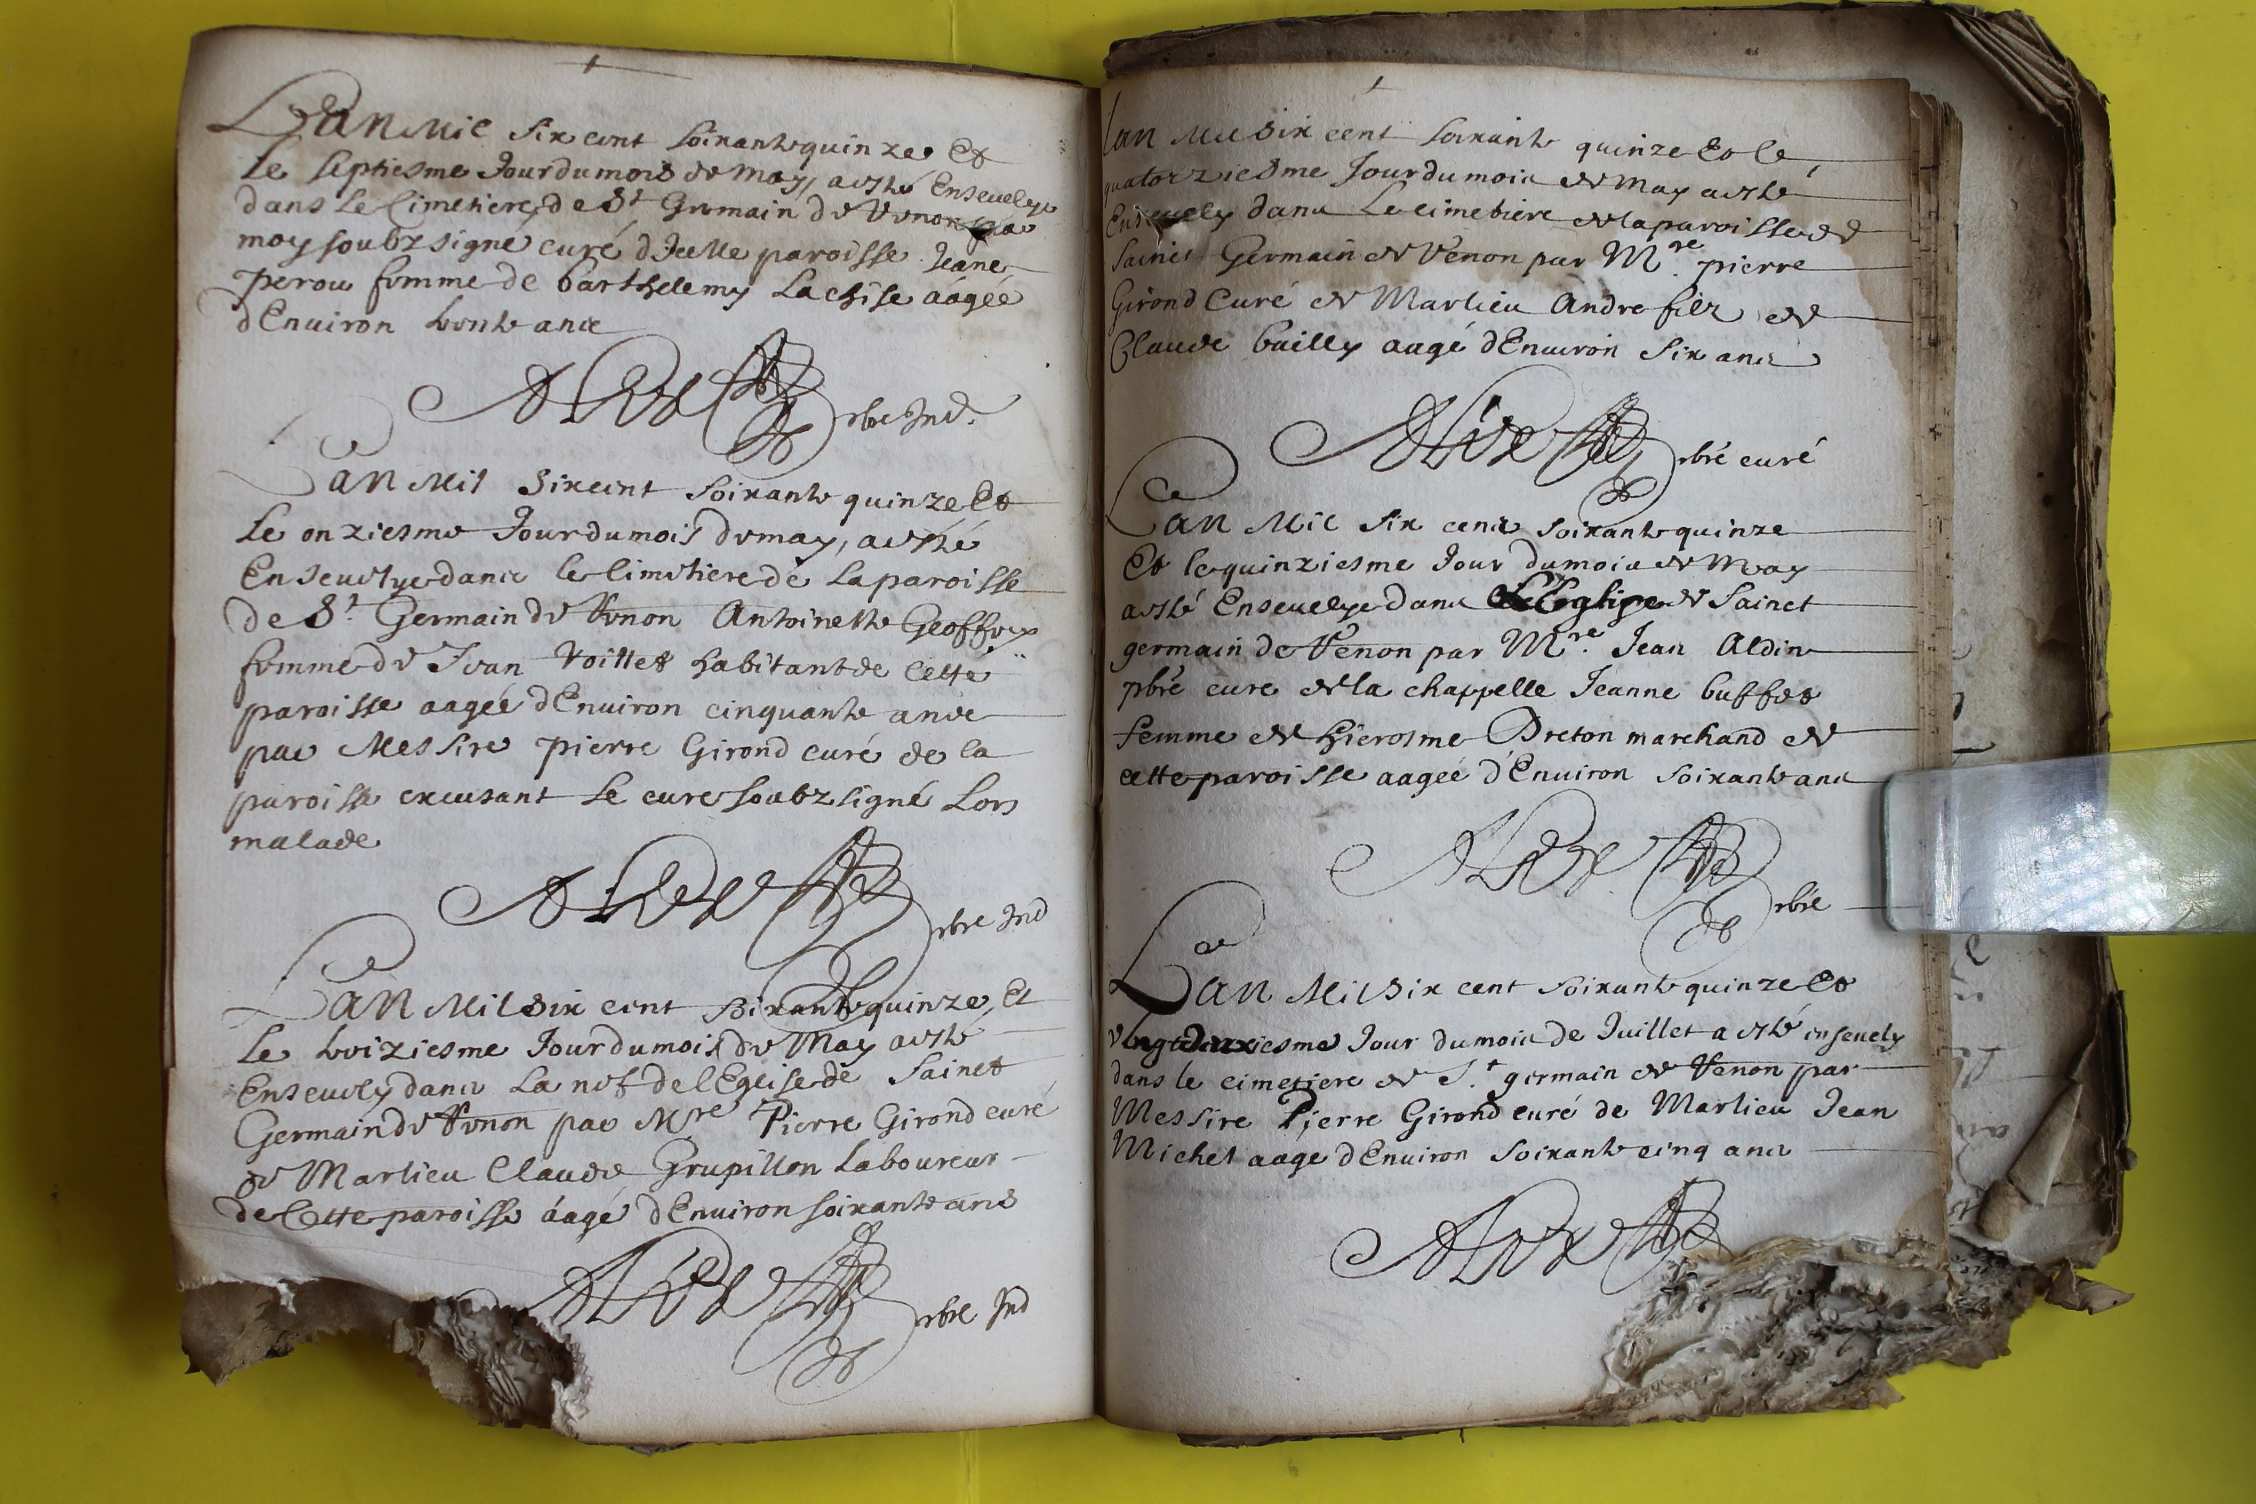 L'an Mil six cent soixante quinze et
le septiesme Jour du mois de may, a esté Ensevelye
dans le Cimetiere de St Germain de Venon par
moy soubzsigné curé d'Icelle paroisse Jeane
perou femme de barthelemy Lachise aagée
d'Environ trente ans
pbre Ind.
L'an Mil six cent soixante quinze Et
le onziesme Jour du mois de may, a esté
Ensevelye dans le Cimetiere de La paroisse
de St. Germain de Venon Antoinette Geoffroy
femme de Jean Voillet habitant de cette
paroisse aagée d'Environ cinquante ans
par Messire pierre Girond curé de la
paroisse excusant le curé soubzsigné Lors
malade
pbre Ind
L'an Mil six cent soixante quinze, Et
le treiziesme Jour du mois de May a esté
Ensevely dans La nef de l'Eglise de Sainct
Germain de Venon par Mre Pierre Girond curé
de Marlieu Claude Grupillon Laboureur
de Cette paroisse áagé d'Environ soixante ans
pbre Ind
L'an Mil six cent soixante quinze Et le
quatorziesme Jour du mois de may a esté
Ensevely dans Le cimetiere de la paroisse de
Sainct Germain de Venon par Mre. pierre
Girond Curé de Marlieu Andre filz de
Claude bailly aagé d'Environ six ans
pbré curé
L'an Mil six cent soixante quinze
Et le quinziesme Jour du mois de May
a esté Ensevelye dans L'Eglise de Sainct
germain de Venon par Mre. Jean Aldin
pbré cure de la chappelle Jeanne buffet
femme de hierosme Breton marchand de
cette paroisse aagée d'Environ soixante ans
pbre
L'an Mil six cent soixante quinze Et
vingt deuxiesme Jour du mois de Juillet a esté ensevely
dans le cimetiere de S.t germain de Venon par
Messire Pierre Girond curé de Marlieu Jean
Michel aage d'Environ soixante cinq ans